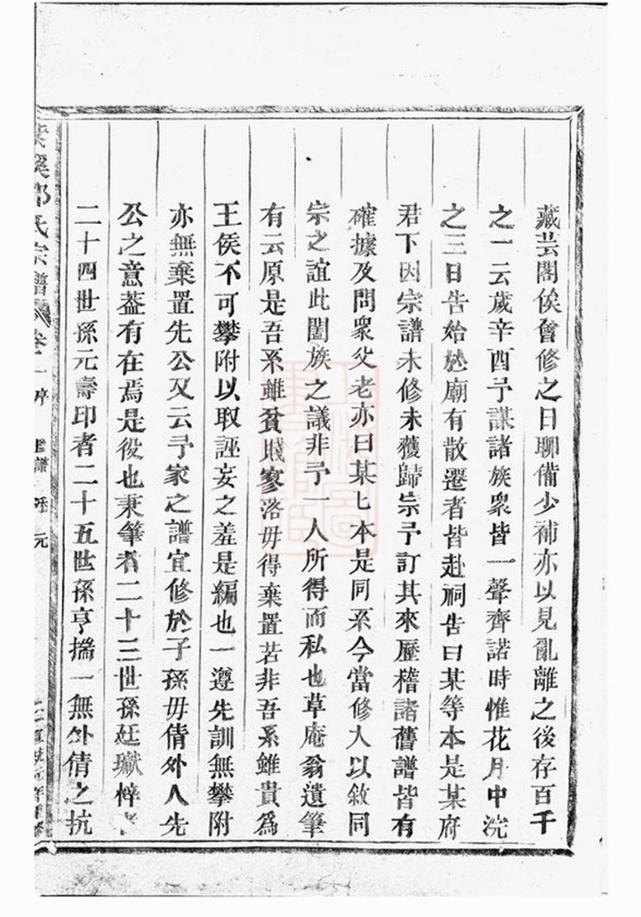 藏芸閣俟詧修之日聊備少補亦以見亂離之後存百千
之一云歲辛酉予謀諸族衆皆一聲齊諾時惟花月中浣
之三日告始於廟有散遷者皆赴祠告曰某等本是某府
君下因宗譜未修未獲歸宗予訂其來歷稽諸舊譜皆有
確據及問衆父老亦曰某七本是同系今當修人以敘同
宗之誼此闔族之議非予一人所得而私也草庵翁遺筆
有云原是吾系雖貧賤寥落毋得棄置若非吾系雖貴為
王侯不可攀附以取誣妄之羞是編也一遵先訓無攀附
亦無棄置先公又云予家之譜宜修於子孫毋倩外人先
公之意葢有在焉是役也秉筆者二十三世孫廷瓛梓
二十四世孫元壽印者二十五世孫亨揣一無外倩之抗
氏宗譜 卷一